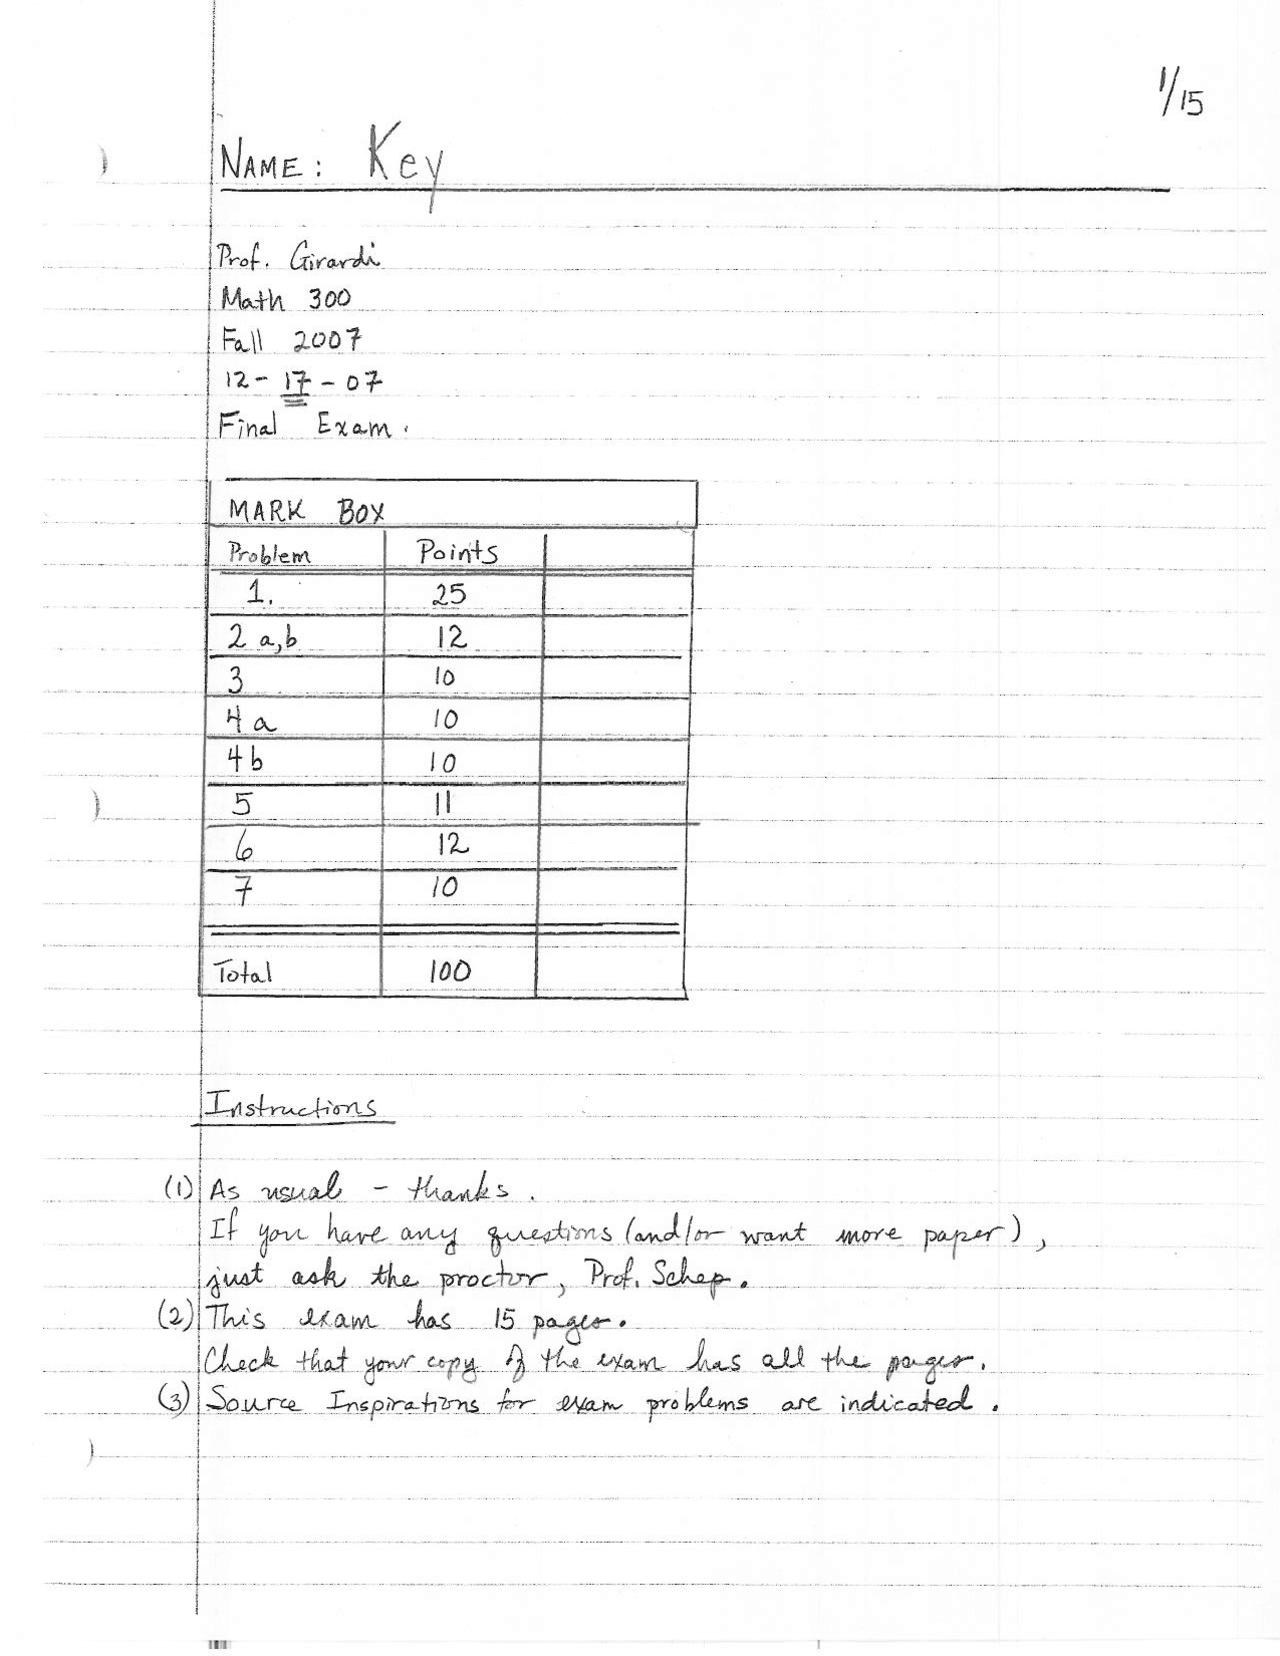 1/15
NAME: Key
Prof. Girardi
Math 300
Fall 2007
12-17-07
Final Exam.
MARK BOX
Problem Points
1. 25
2 a,b 12
3 10
4 a 10
4 b 10
5 11
6 12
7 10
Total 100
Instructions
(1) As usual - thanks.
If you have any questions (and/or want more paper),
just ask the proctor, Prof. Schep.
(2) This exam has 15 pages.
Check that your copy of the exam has all the pages.
(3) Source Inspirations for exam problems are indicated.